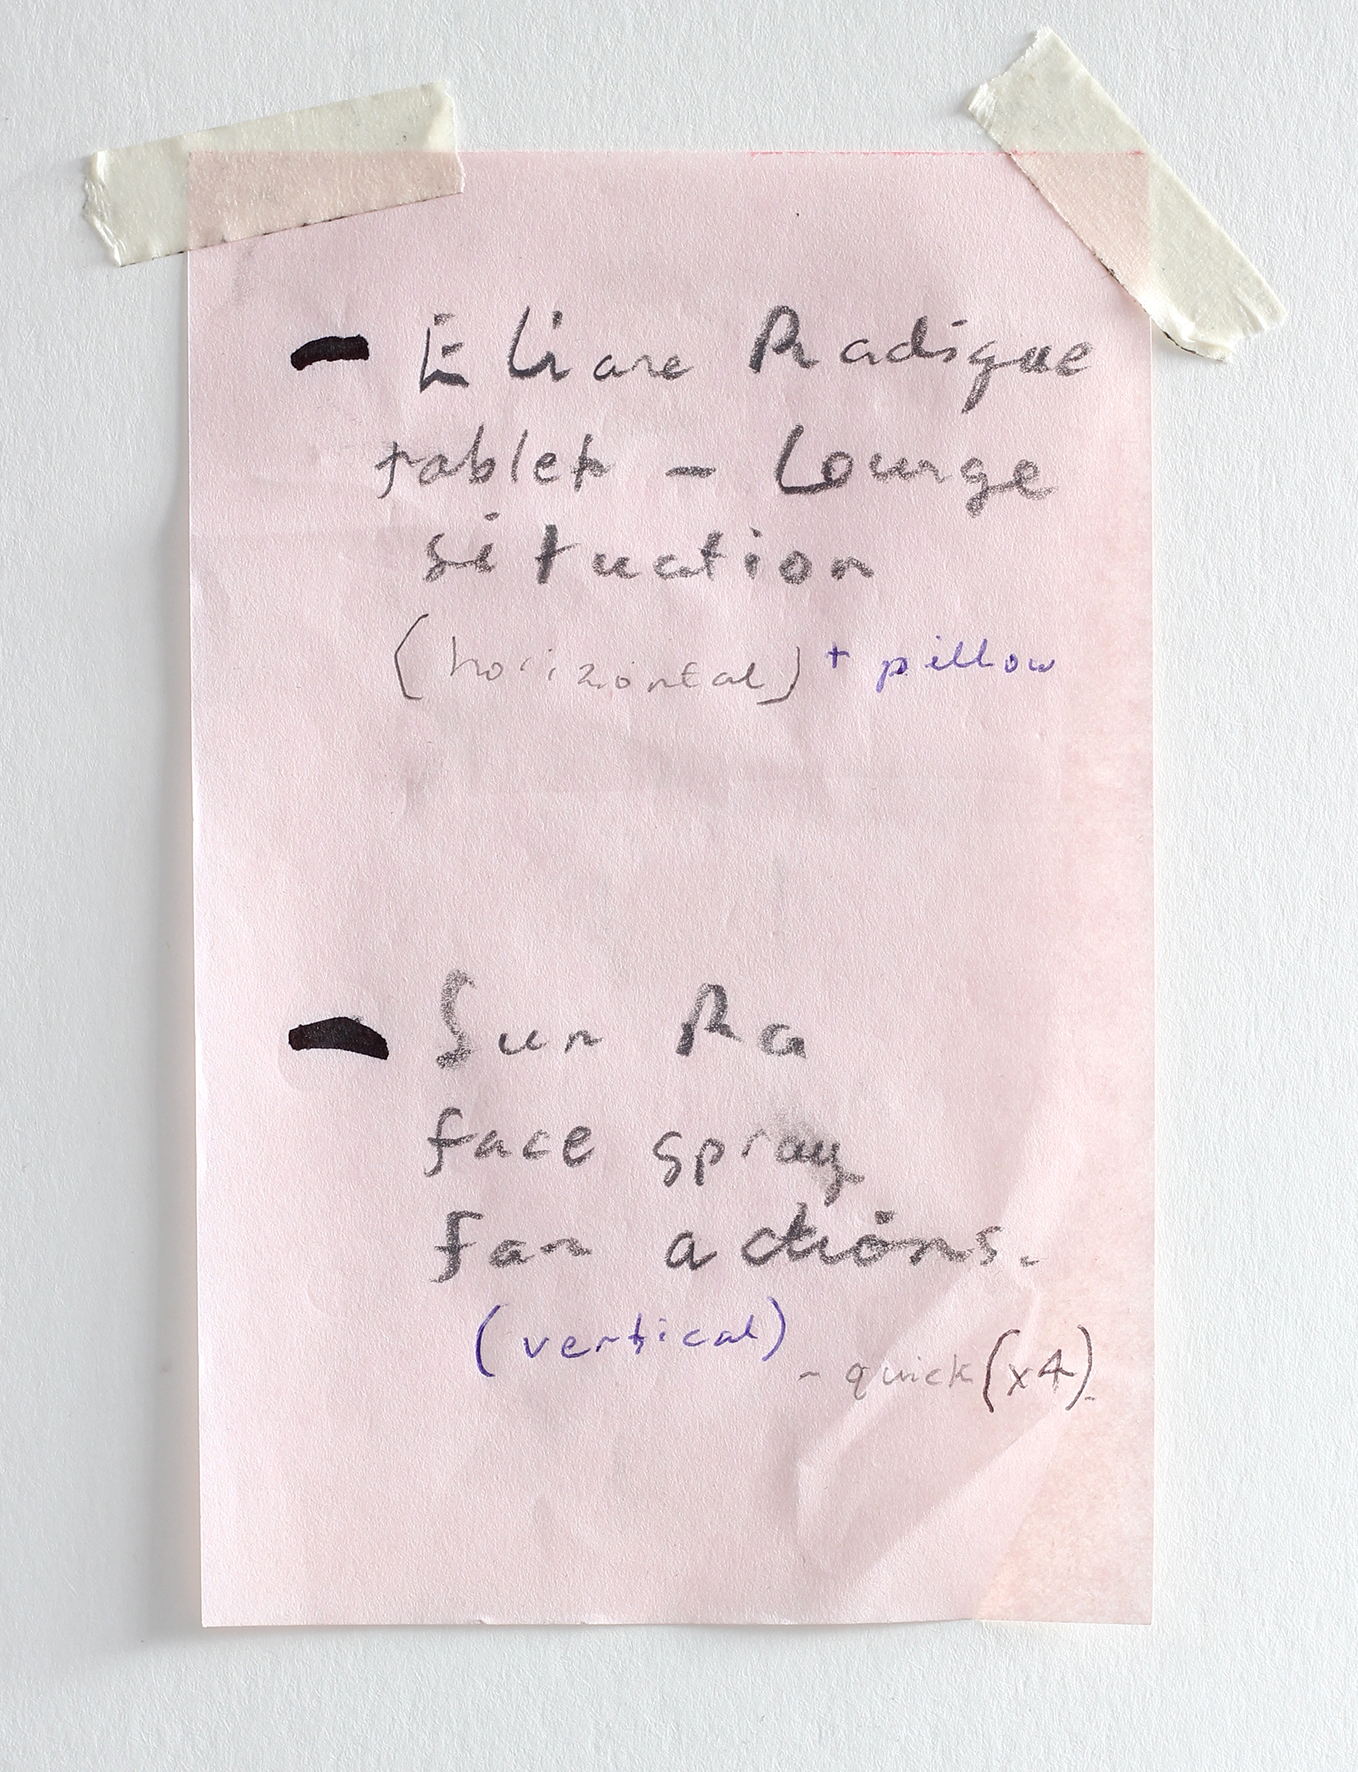 - Eliane Radigue
tablet - Lounge
situation
(horizontal) + pillow
- Sun Ra
face spray
fan actions.
(vertical)
- quick (x4)